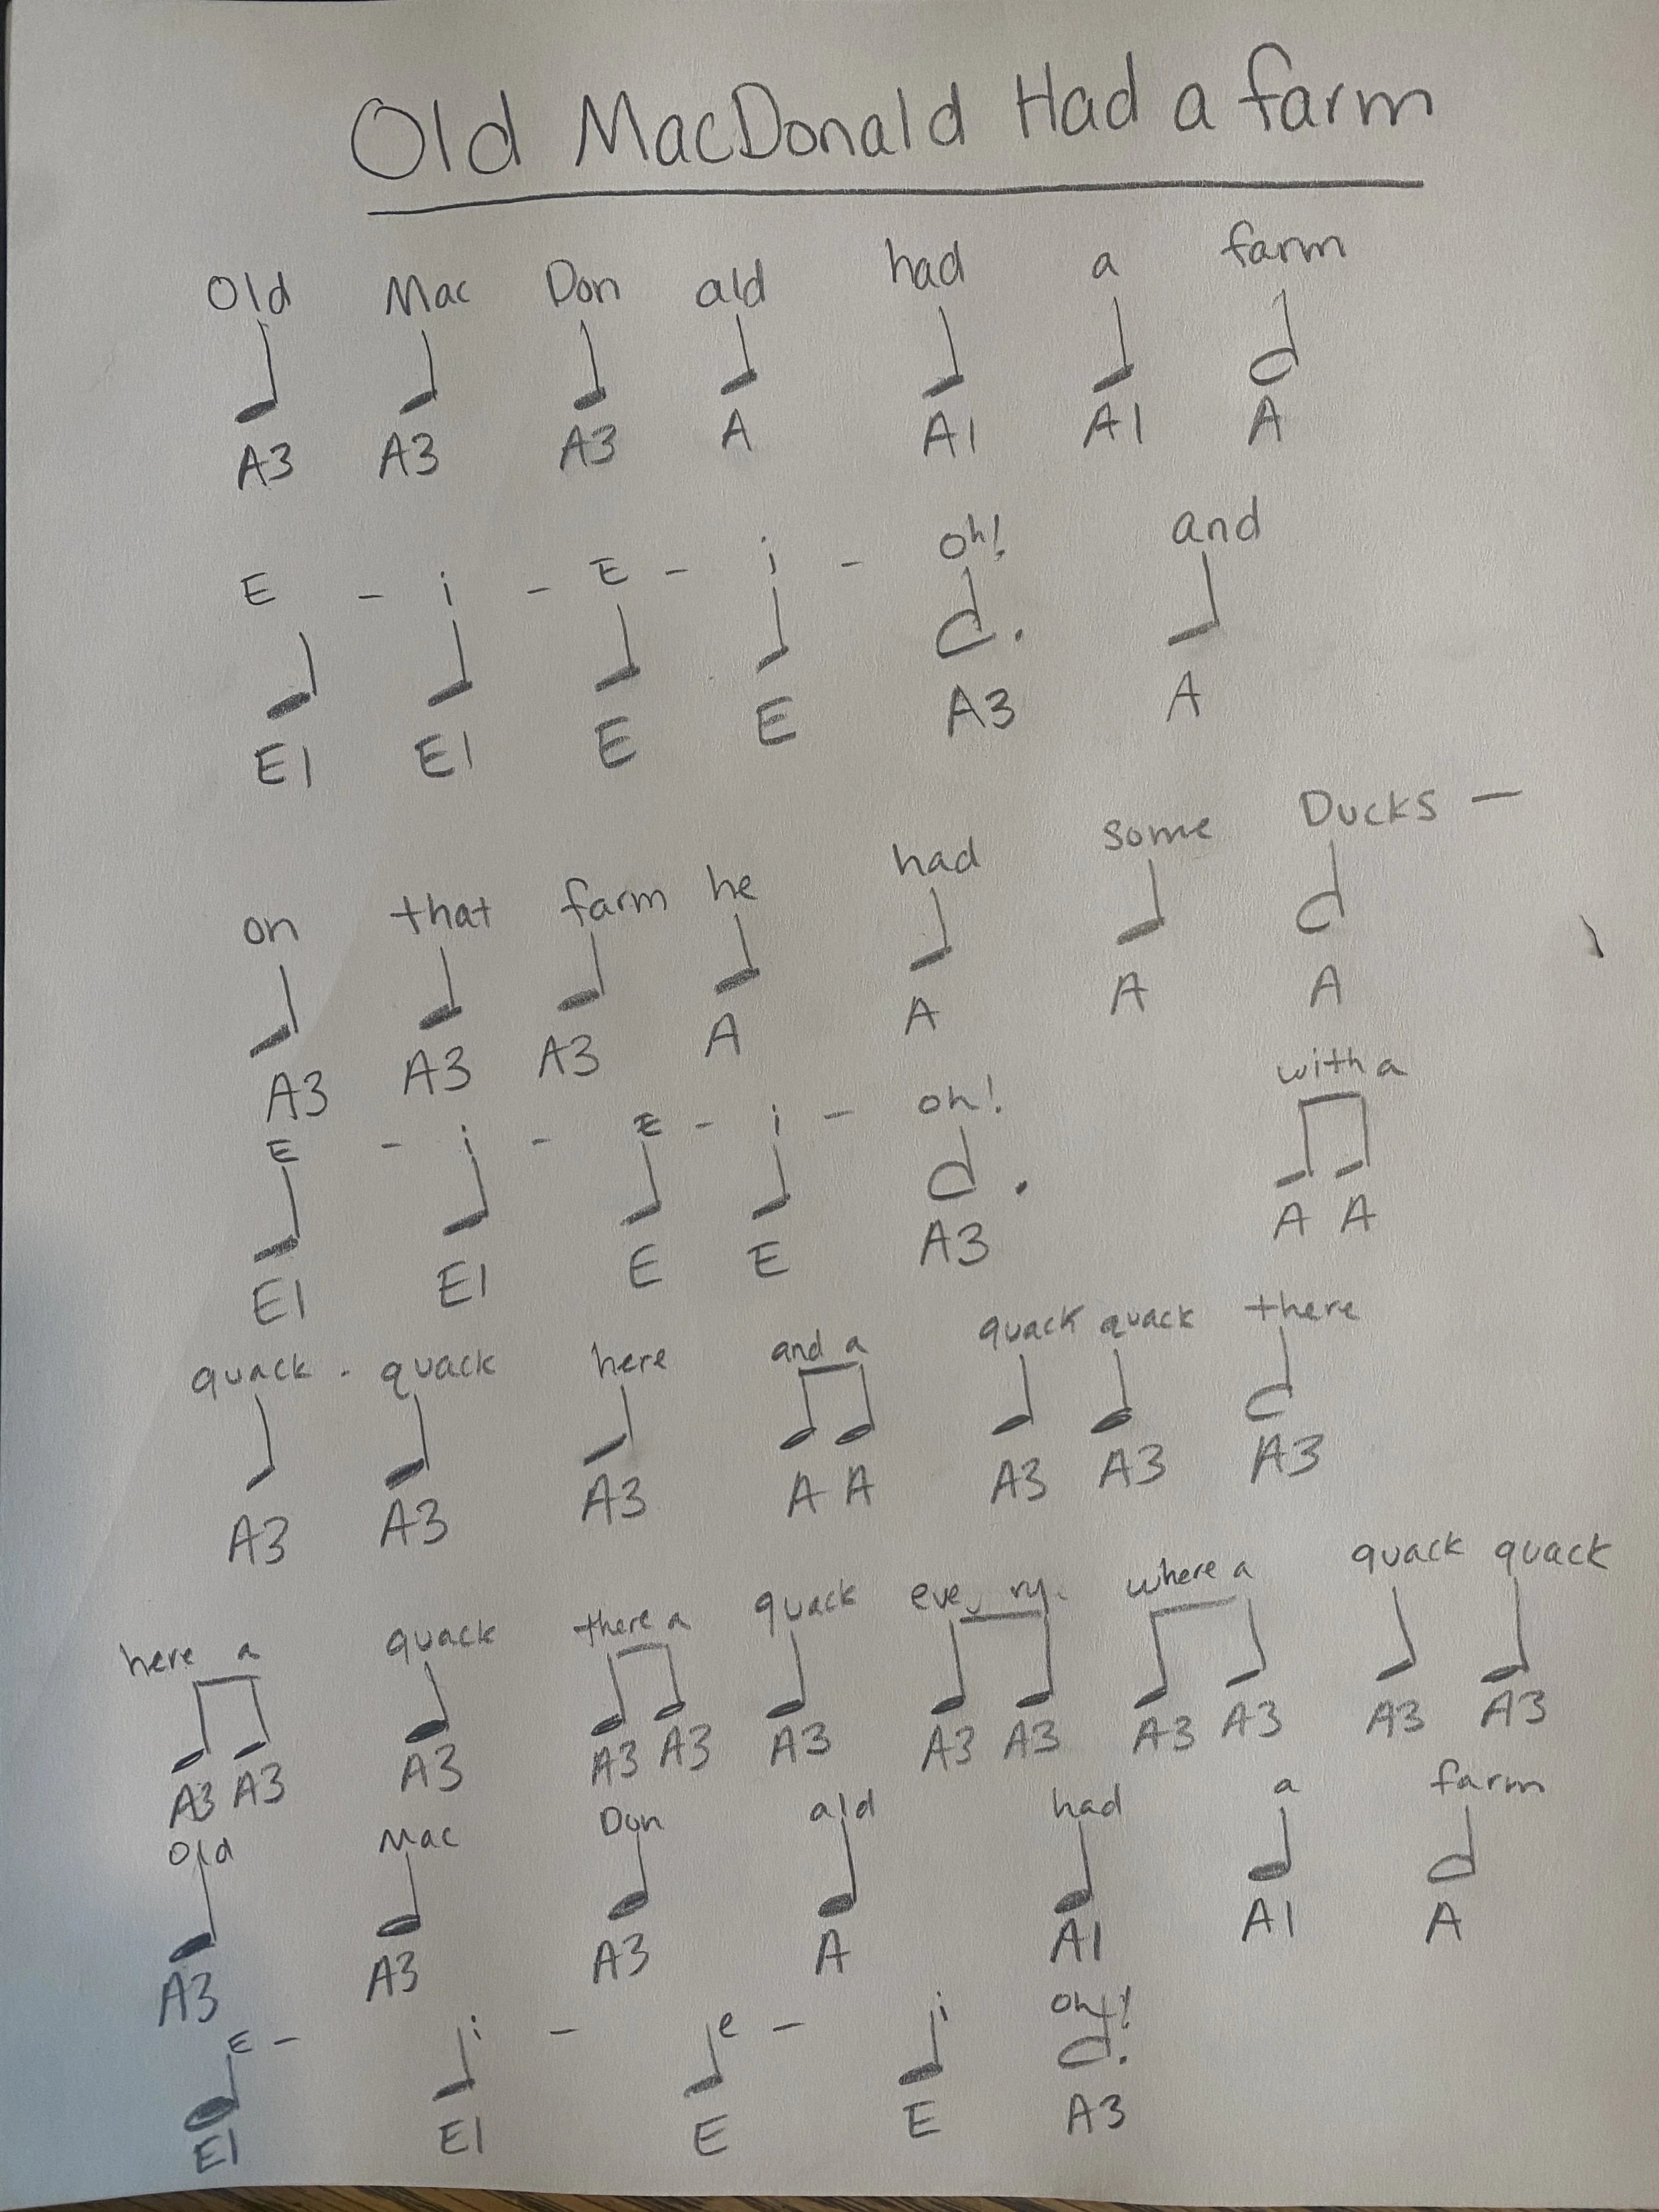 Old MacDonald Had a farm
Old Mac Don ald had a farm
A3 A3 A3 A A1 A1 A
E - i - E - i - oh! and
E1 E1 E E A3 A
on that farm he had some Ducks —
A3 A3 A3 A A A A
E - i - E - i - oh! with a
E1 E1 E E A3 A A
quack - quack here and a quack quack there
A3 A3 A3 A A A3 A3 A3
here a quack there a quack eve ry- where a quack quack
A3 A3 A3 A3 A3 A3 A3 A3 A3 A3 A3 A3
Old Mac Don ald had a farm
A3 A3 A3 A A1 A1 A
E - i - e - i oh!
E1 E1 E E A3